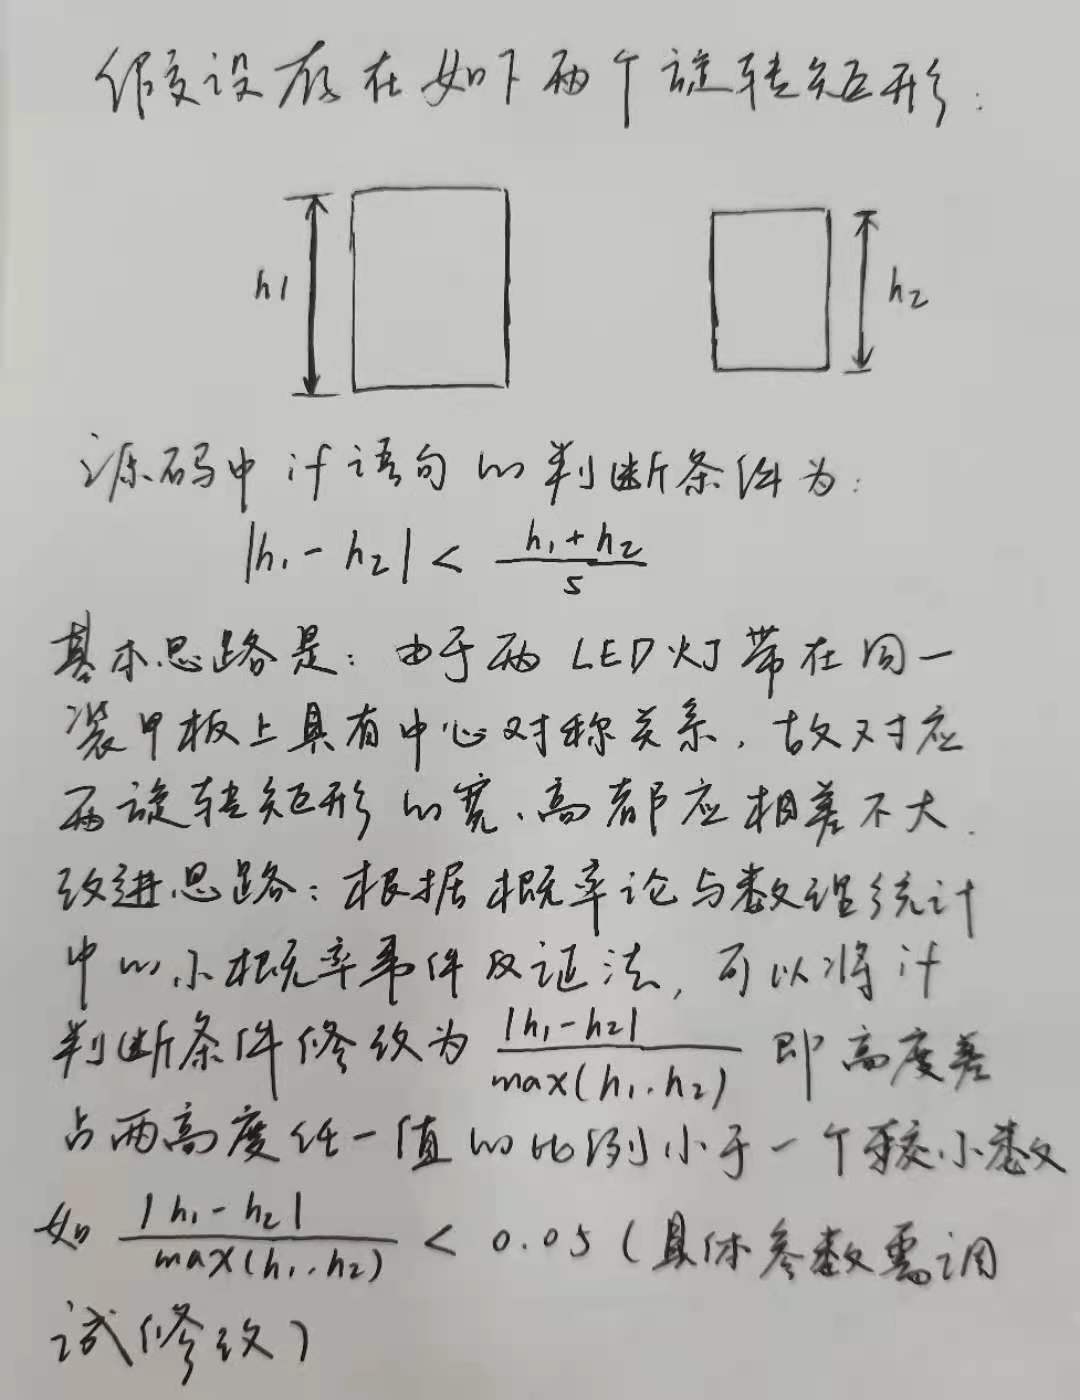 假设存在如下两个旋转矩形：
h1
h2
源码中if语句的判断条件为：
|h₁-h₂| < (h₁+h₂)/5
基本思路是：由于两LED灯带在同一
装甲板上具有中心对称关系，故对应
两旋转矩形的宽、高都应相差不大．
改进思路：根据概率论与数理统计
中的小概率事件反证法，可以将if
判断条件修改为 |h₁-h₂|/max(h₁,h₂) 即高度差
占两高度任一值的比例小于一个较小数
如 |h₁-h₂|/max(h₁,h₂) < 0.05（具体参数需调
试修改）